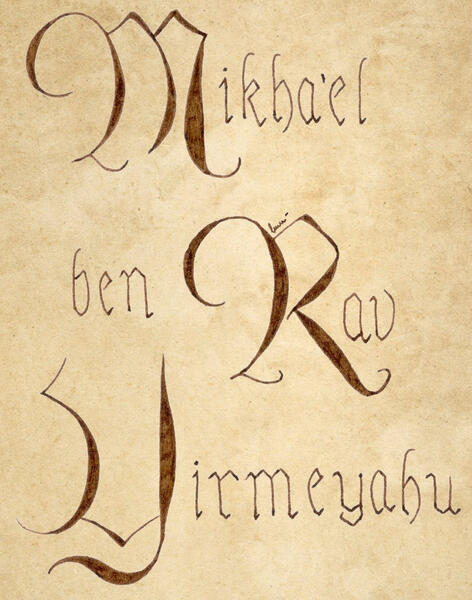 Mikha'el
ben Rav
Yirmeyahu